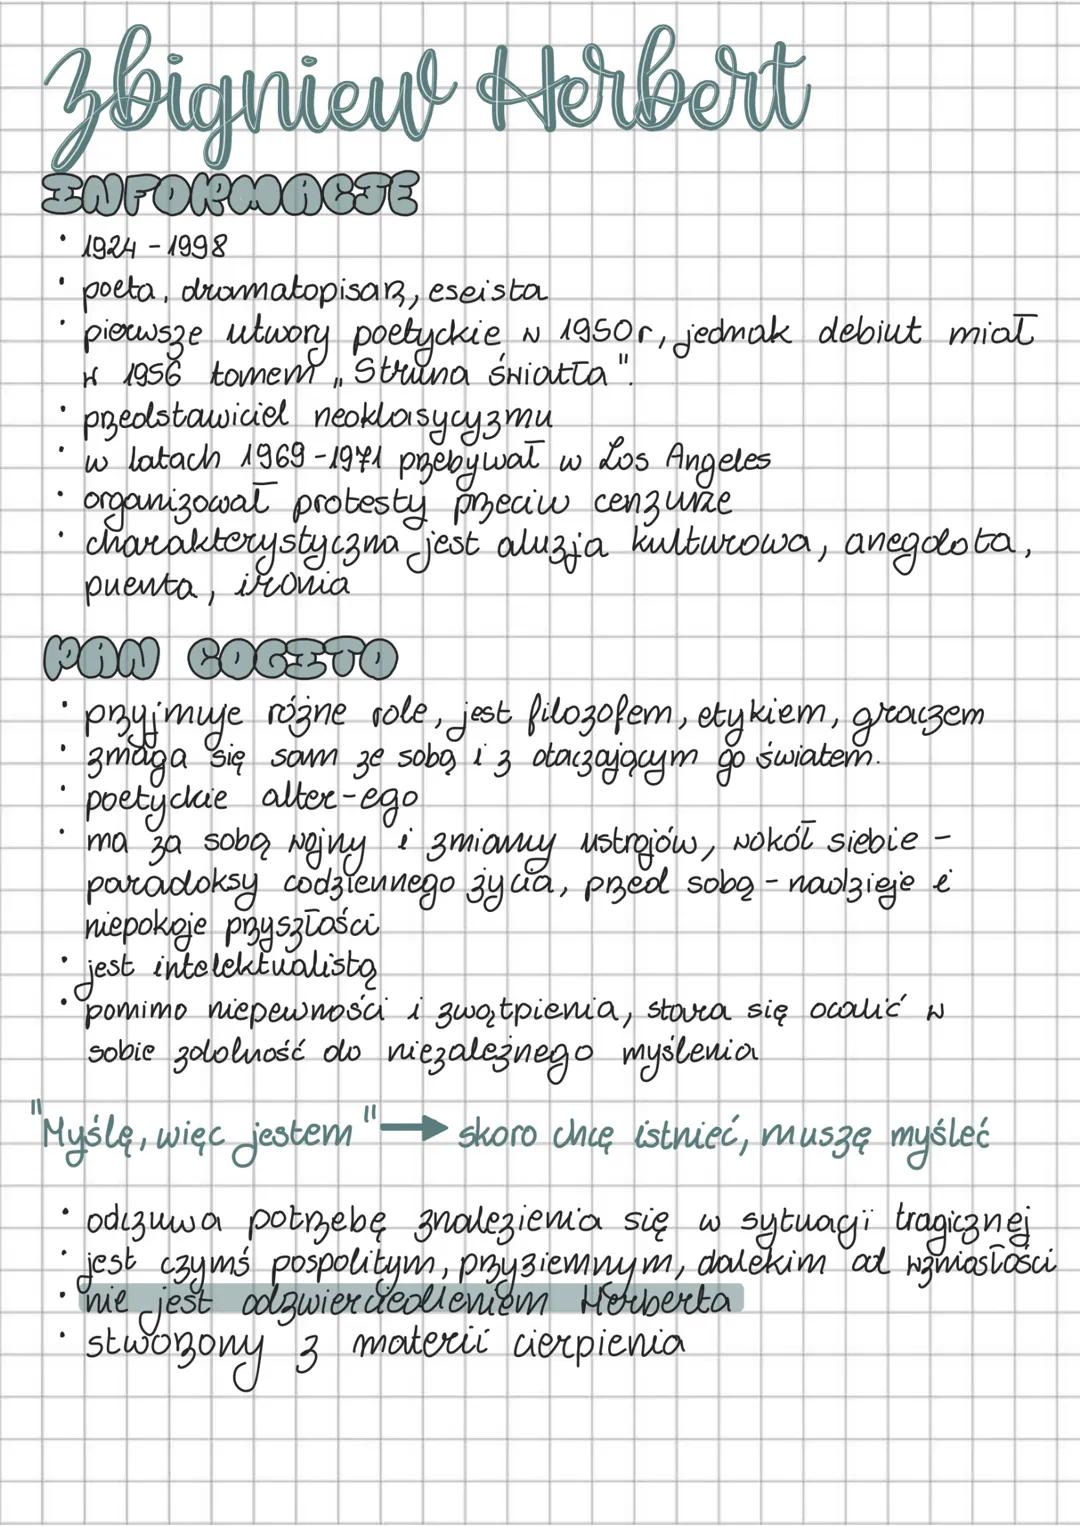 Zbigniew Herbert
INFORMACJE
• 1924 - 1998
• poeta, dramatopisarz, eseista
• pierwsze utwory poetyckie w 1950r, jednak debiut miał
w 1956 tomem „Struna światła".
• przedstawiciel neoklasycyzmu
• w latach 1969-1971 przebywał w Los Angeles
• organizował protesty przeciw cenzurze
• charakterystyczna jest aluzja kulturowa, anegdota,
puenta, ironia
PAN COGITO
• przyjmuje różne role, jest filozofem, etykiem, graczem
• zmaga się sam ze sobą i z otaczającym go światem.
• poetyckie alter-ego
• ma za sobą wojny i zmiany ustrojów, wokół siebie -
paradoksy codziennego życia, przed sobą - nadzieje i
niepokoje przyszłości
• jest intelektualistą
• pomimo niepewności i zwątpienia, stara się ocalić w
sobie zdolność do niezależnego myślenia
"Myślę, więc jestem" → skoro chcę istnieć, muszę myśleć
• odczuwa potrzebę znalezienia się w sytuacji tragicznej
• jest czymś pospolitym, przyziemnym, dalekim od wzniosłości
• nie jest odzwierciedleniem Herberta
• stworzony z materii cierpienia